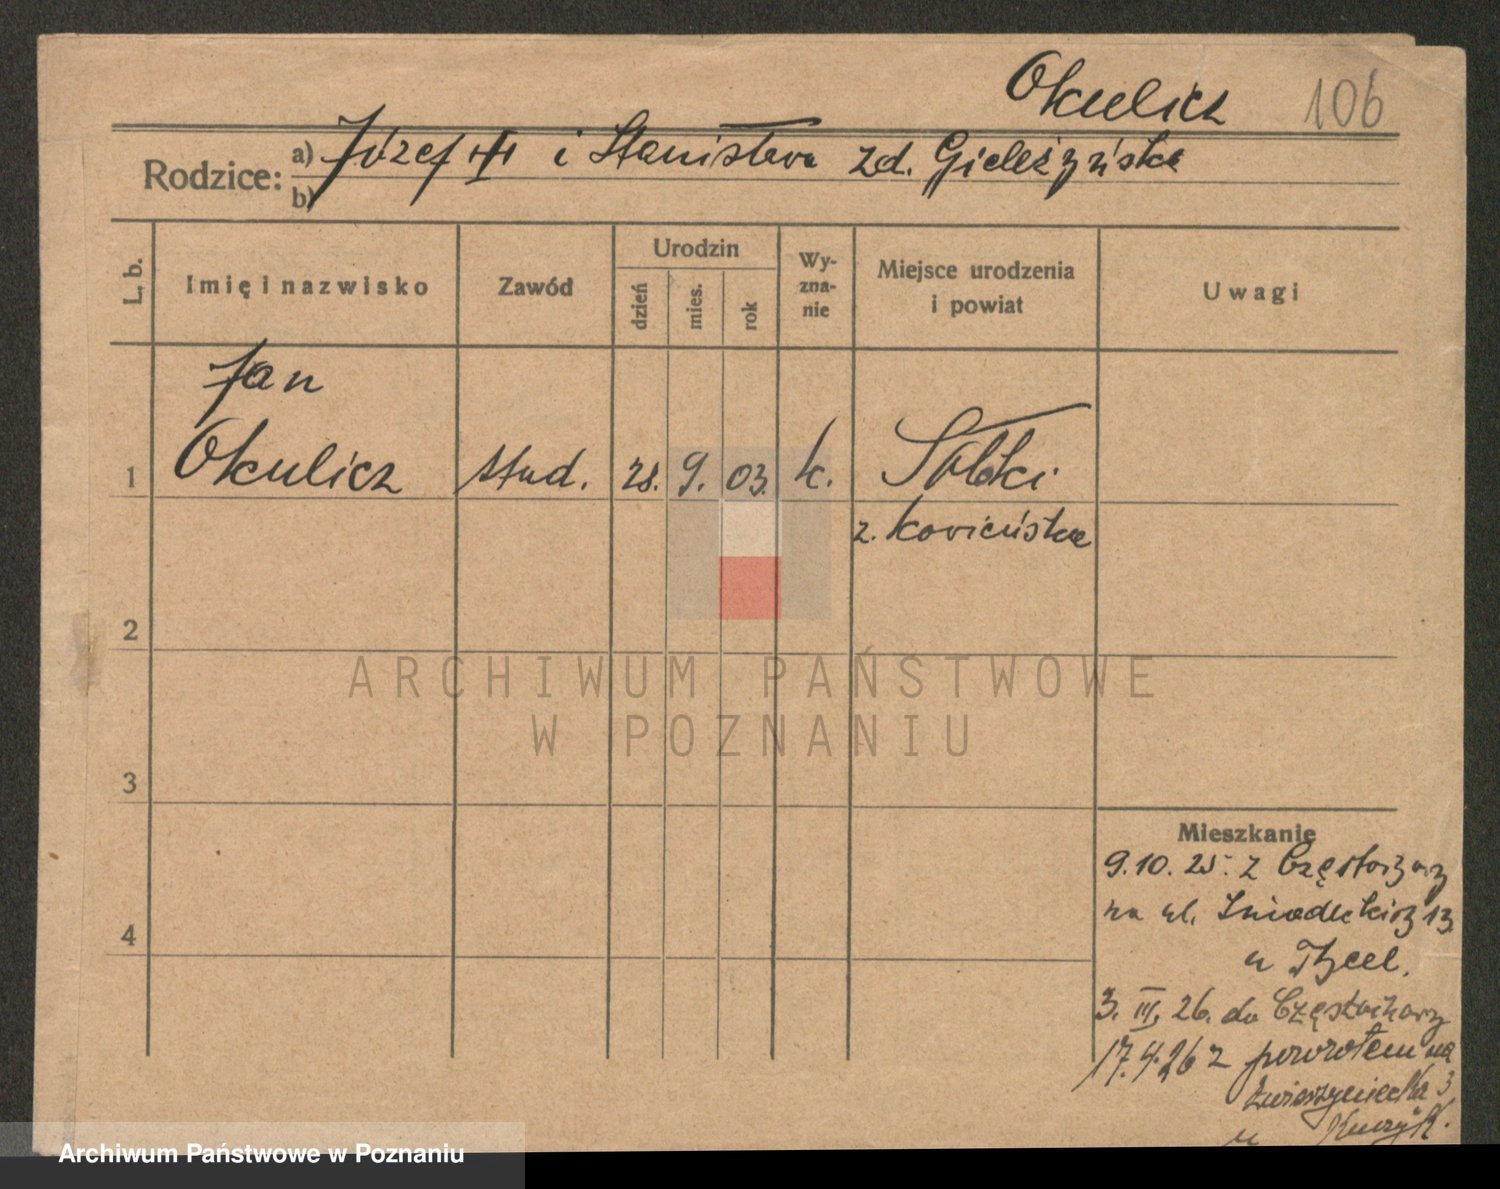 Okulicz 106
Rodzice: a) Józef i Stanisława zd. Gieleżyńska
b)
L. b. Imię i nazwisko Zawód Urodzin dzień mies. rok Wyznanie Miejsce urodzenia i powiat Uwagi
Jan
1 Okulicz stud. 28. 9. 03. k.
z. Kowieńska
2
ARCHIWUM PAŃSTWOWE
W POZNANIU
3
Mieszkanie
9.10.25. z Częstochowy
na ul. Śniadeckich 13
4
u
3. III. 26. do Częstochowy
17.4.26 z powrotem na
Zwierzyniecka 3
u
Archiwum Państwowe w Poznaniu